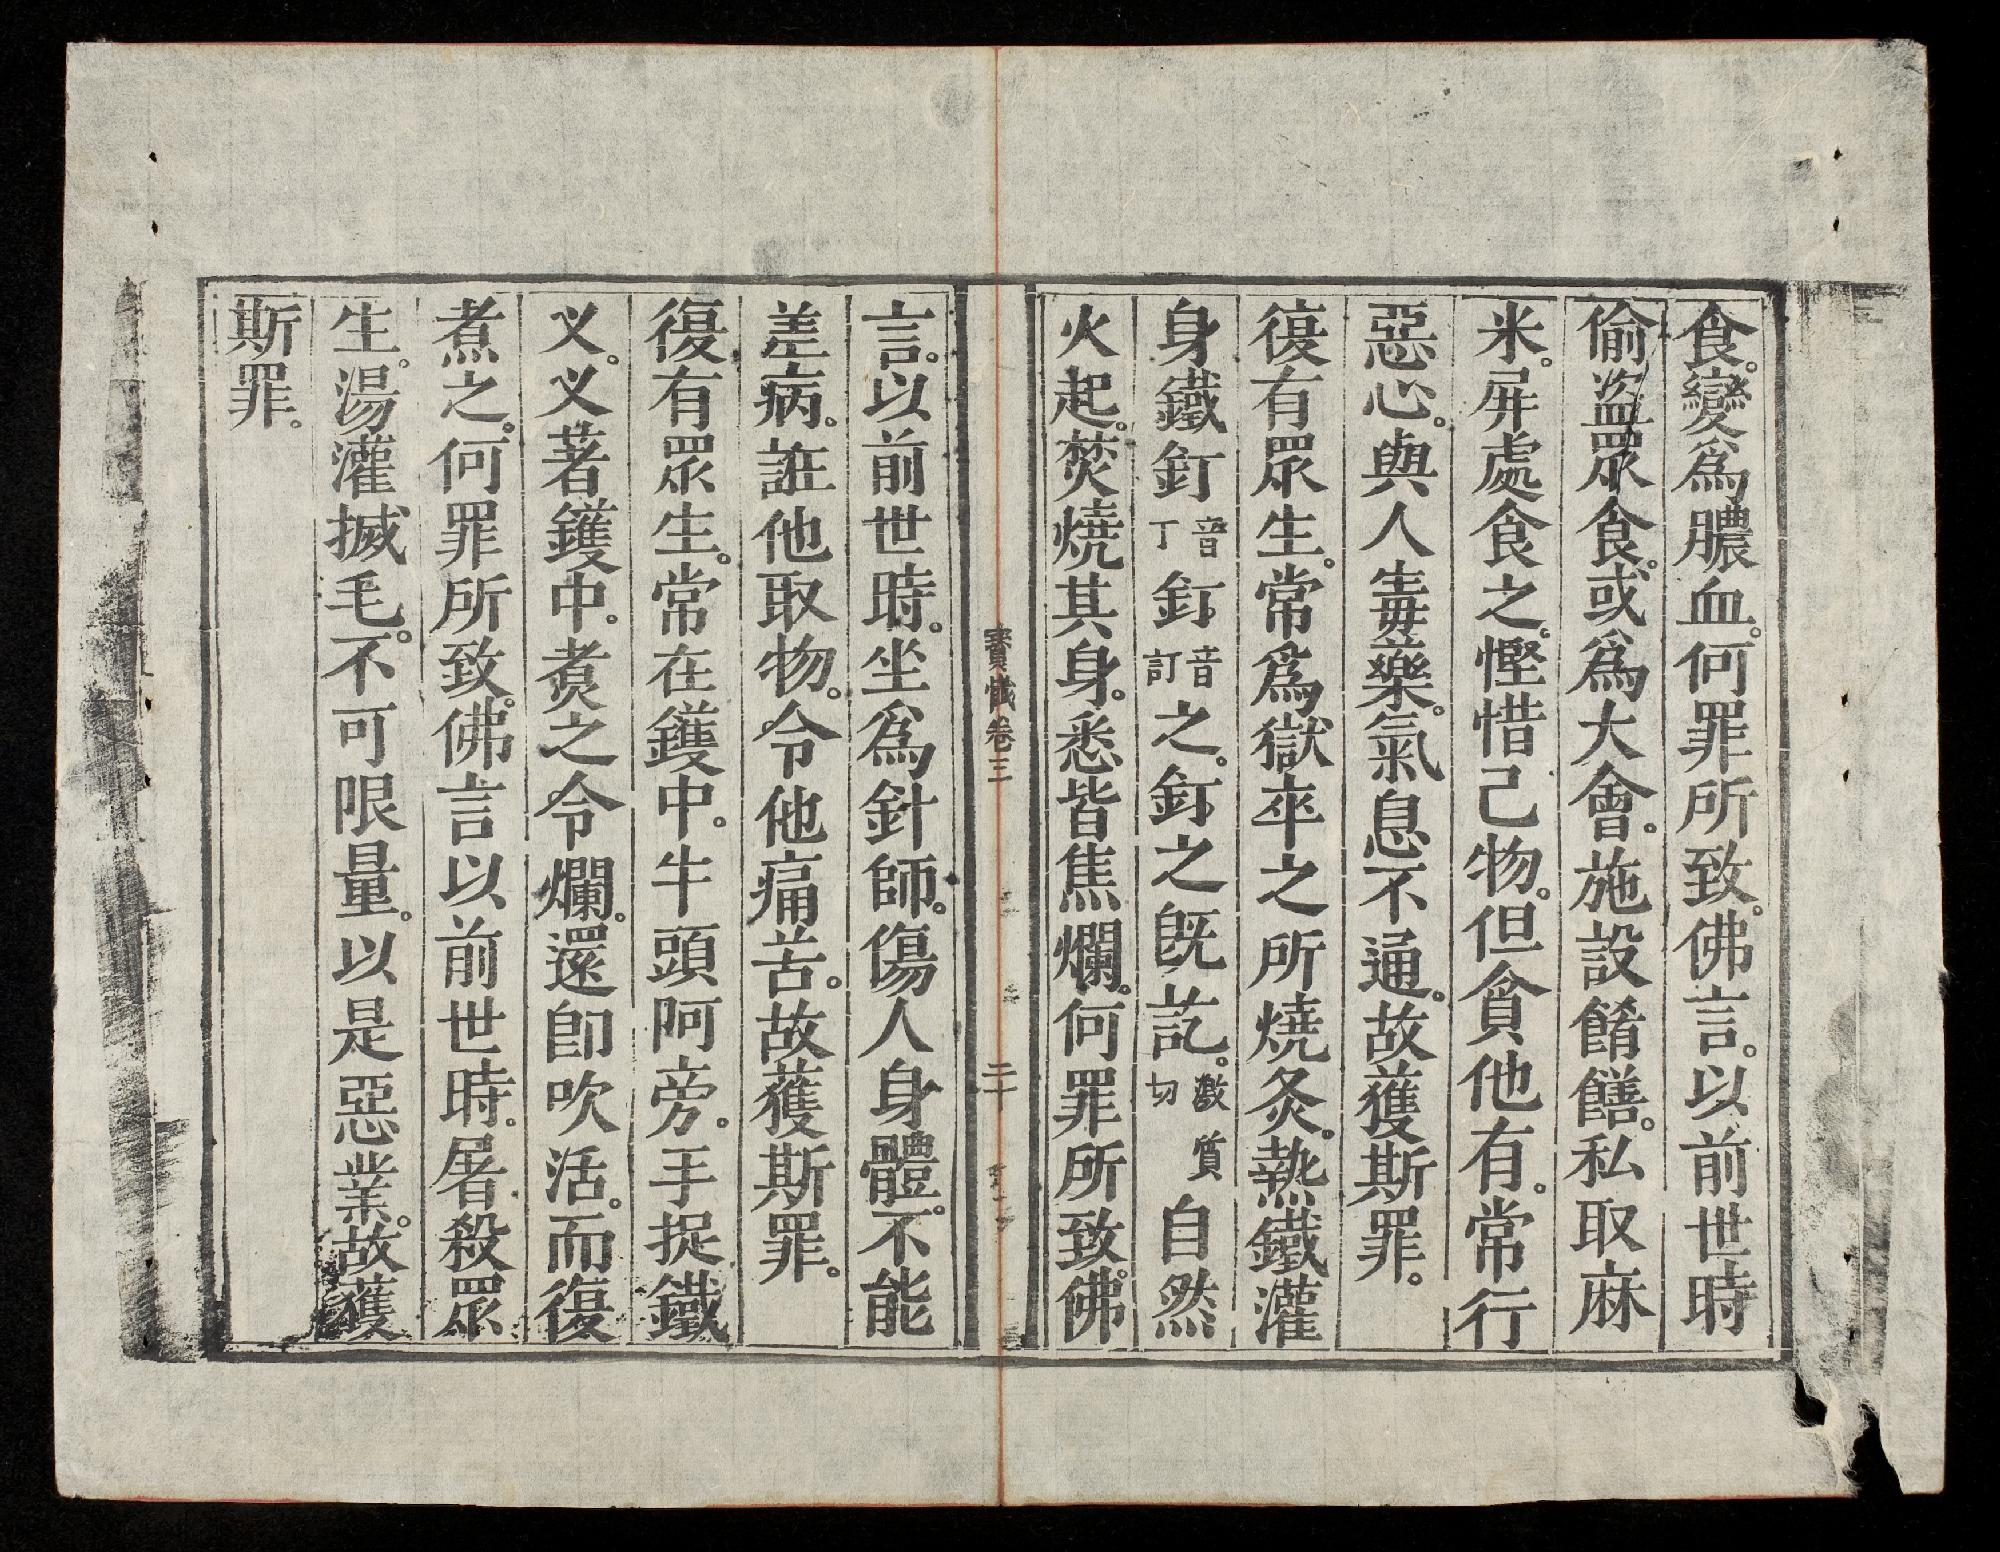 食。變爲膿血。何罪所致。佛言。以前世時
偷盜眾食。或爲大會。施設餚饍。私取麻
米。屏處食之。慳惜己物。但貪他有。常行
惡心。與人毒藥。氣息不通。故獲斯罪。
復有眾生。常爲獄卒之所燒炙。熱鐵灌
身鐵釘音丁釘音訂之。釘之旣訖。激質切自然
火起。焚燒其身。悉皆焦爛。何罪所致。佛
寶懺卷三 二十
言。以前世時。坐爲針師。傷人身體。不能
差病。誑他取物。令他痛苦。故獲斯罪。
復有眾生。常在鑊中。牛頭阿旁。手捉鐵
叉。叉著鑊中。煑之令爛。還卽吹活。而復
煮之。何罪所致。佛言以前世時。屠殺眾
生。湯灌搣毛。不可限量。以是惡業。故獲
斯罪。